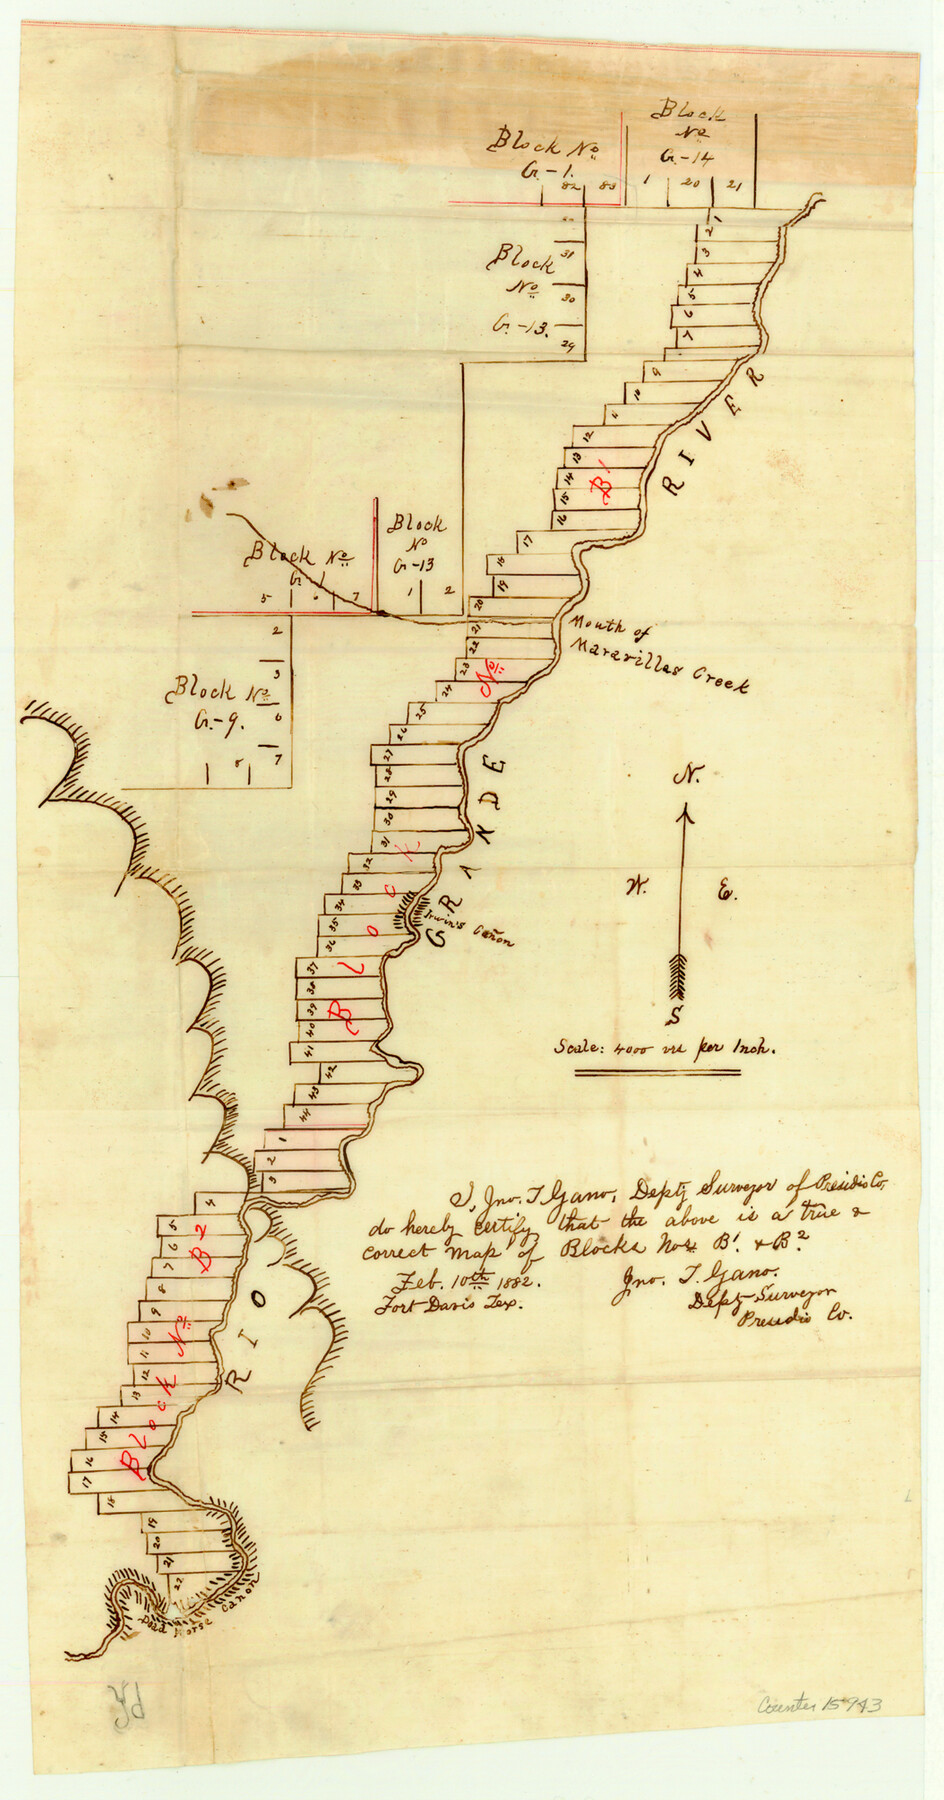 Block
No
G-14
Block No
G-1.
82 83 1 20 21
Block
No
G-13.
31
30
29
1
2
3
4
5
6
7
9
10
11
12
13
14
15
16
17
18
19
20
21
22
23
24
25
26
27
28
29
30
31
32
33
34
35
36
37
38
39
40
41
42
43
44
Block No B1
RIO GRANDE RIVER
Block
No
G-13
1 2
Block No
G-1
5 6 7
Mouth of
Maravillas Creek
Block No
G-9.
2
3
6
7
8
N.
W. E.
S
Irwin's Cañon
Scale: 4000 vrs per Inch.
1
2
3
4
5
6
7
8
9
10
11
12
13
14
15
16
17
18
19
20
21
22
Block No B2
I, Jno. T. Gano, Depty Surveyor of Presidio Co,
do hereby certify that the above is a true &
correct map of Blocks Nos B1. & B2.
Feb. 10th 1882.
Fort Davis Tex.
Jno. T. Gano.
Depty Surveyor
Presidio Co.
Dead Horse Canon
Counter 15943